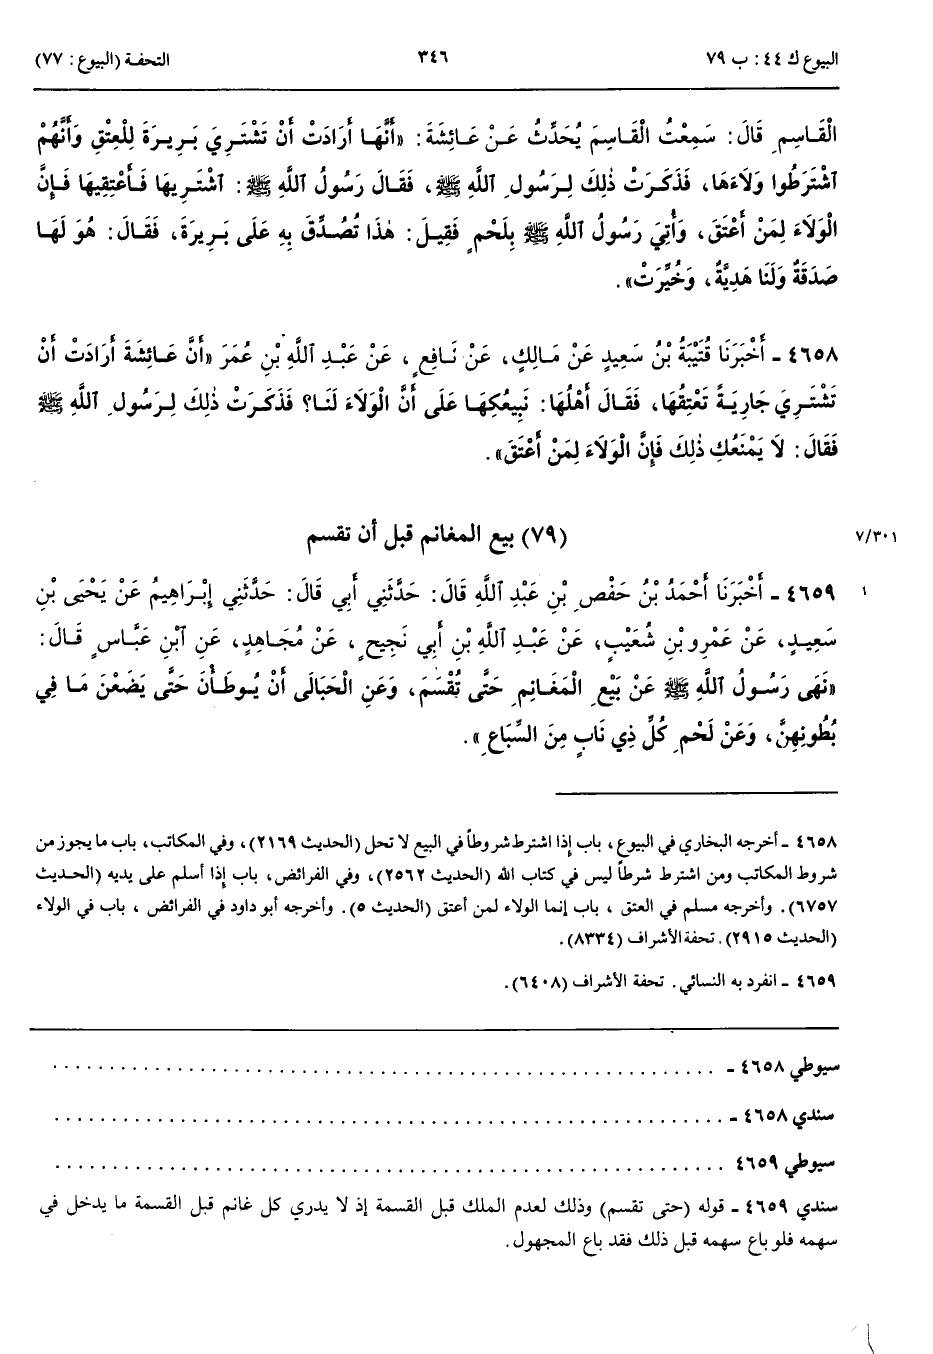 البيوع ك ٤٤: ب ٧٩ ٣٤٦ التحفة (البيوع: ٧٧)
الْقَاسِمِ قَالَ: سَمِعْتُ الْقَاسِمَ يُحَدِّثُ عَنْ عَائِشَةَ: «أَنَّهَا أَرَادَتْ أَنْ تَشْتَرِيَ بَرِيرَةَ لِلْعِتْقِ وَأَنَّهُمْ
ٱشْتَرَطُوا وَلَاءَهَا، فَذَكَرَتْ ذٰلِكَ لِرَسُولِ ٱللَّهِ ﷺ، فَقَالَ رَسُولُ ٱللَّهِ ﷺ: ٱشْتَرِيهَا فَأَعْتِقِيهَا فَإِنَّ
الْوَلَاءَ لِمَنْ أَعْتَقَ، وَأُتِيَ رَسُولُ ٱللَّهِ ﷺ بِلَحْمٍ فَقِيلَ: هٰذَا تُصُدِّقَ بِهِ عَلَى بَرِيرَةَ، فَقَالَ: هُوَ لَهَا
صَدَقَةٌ وَلَنَا هَدِيَّةٌ، وَخُيِّرَتْ».
٤٦٥٨ ـ أَخْبَرَنَا قُتَيْبَةُ بْنُ سَعِيدٍ عَنْ مَالِكٍ، عَنْ نَافِعٍ، عَنْ عَبْدِ ٱللَّهِ بْنِ عُمَرَ «أَنَّ عَائِشَةَ أَرَادَتْ أَنْ
تَشْتَرِيَ جَارِيَةً تَعْتِقُهَا، فَقَالَ أَهْلُهَا: نَبِيعُكِهَا عَلَى أَنَّ الْوَلَاءَ لَنَا؟ فَذَكَرَتْ ذٰلِكَ لِرَسُولِ ٱللَّهِ ﷺ
فَقَالَ: لَا يَمْنَعُكِ ذٰلِكَ فَإِنَّ الْوَلَاءَ لِمَنْ أَعْتَقَ».
(٧٩) بيع المغانم قبل أن تقسم ٧/٣٠١
٤٦٥٩ ـ أَخْبَرَنَا أَحْمَدُ بْنُ حَفْصِ بْنِ عَبْدِ ٱللَّهِ قَالَ: حَدَّثَنِي أَبِي قَالَ: حَدَّثَنِي إِبْرَاهِيمُ عَنْ يَحْيَى بْنِ ١
سَعِيدٍ، عَنْ عَمْرِو بْنِ شُعَيْبٍ، عَنْ عَبْدِ ٱللَّهِ بْنِ أَبِي نَجِيحٍ، عَنْ مُجَاهِدٍ، عَنِ ٱبْنِ عَبَّاسٍ قَالَ:
«نَهَى رَسُولُ ٱللَّهِ ﷺ عَنْ بَيْعِ الْمَغَانِمِ حَتَّى تُقْسَمَ، وَعَنِ الْحَبَالَى أَنْ يُوطَأْنَ حَتَّى يَضَعْنَ مَا فِي
بُطُونِهِنَّ، وَعَنْ لَحْمِ كُلِّ ذِي نَابٍ مِنَ السِّبَاعِ».
٤٦٥٨ ـ أخرجه البخاري في البيوع، باب إذا اشترط شروطاً في البيع لا تحل (الحديث ٢١٦٩)، وفي المكاتب، باب ما يجوز من
شروط المكاتب ومن اشترط شرطاً ليس في كتاب الله (الحديث ٢٥٦٢)، وفي الفرائض، باب إذا أسلم على يديه (الحديث
٦٧٥٧). وأخرجه مسلم في العتق، باب إنما الولاء لمن أعتق (الحديث ٥). وأخرجه أبو داود في الفرائض، باب في الولاء
(الحديث ٢٩١٥). تحفة الأشراف (٨٣٣٤).
٤٦٥٩ ـ انفرد به النسائي. تحفة الأشراف (٦٤٠٨).
سيوطي ٤٦٥٨ ـ . . . . . . . . . . . . . . . . . . . . . . . . . . . . . .
سندي ٤٦٥٨ ـ . . . . . . . . . . . . . . . . . . . . . . . . . . . . . .
سيوطي ٤٦٥٩ . . . . . . . . . . . . . . . . . . . . . . . . . . . . . .
سندي ٤٦٥٩ ـ قوله (حتى تقسم) وذلك لعدم الملك قبل القسمة إذ لا يدري كل غانم قبل القسمة ما يدخل في
سهمه فلو باع سهمه قبل ذلك فقد باع المجهول.